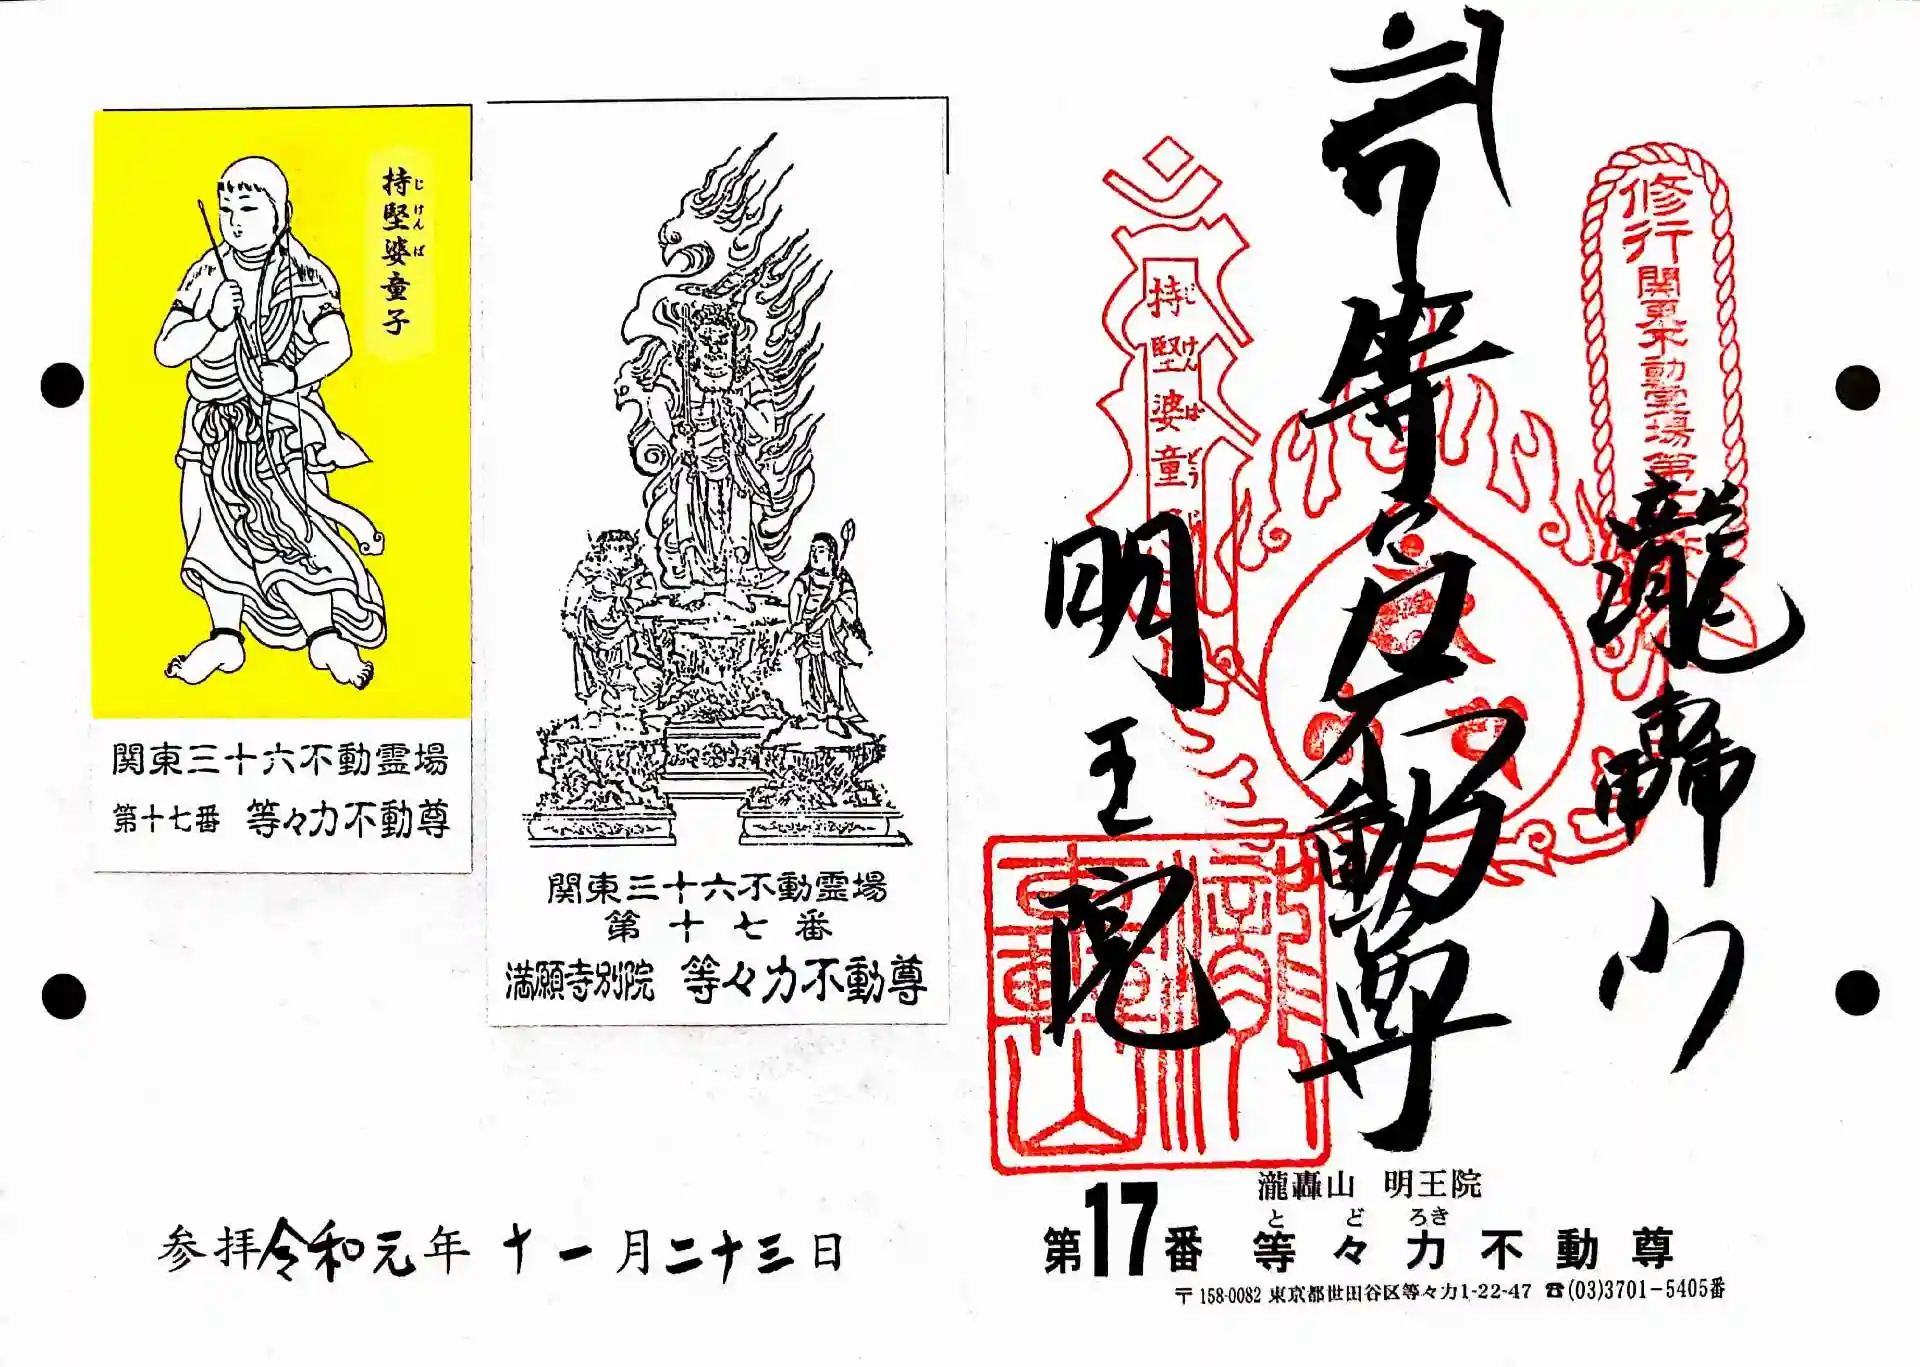 持堅婆童子
じ けん ば
関東三十六不動霊場
第十七番 等々力不動尊
関東三十六不動霊場
第十七番
満願寺別院 等々力不動尊
参拝令和元年十一月二十三日
修行
関東不動霊場第
瀧轟山
等々力不動尊
持堅婆童
じ けん ば どう じ
明王院
瀧轟山 明王院
とどろき
第17番 等々力不動尊
〒158-0082 東京都世田谷区等々力1-22-47 ☎(03)3701-5405番